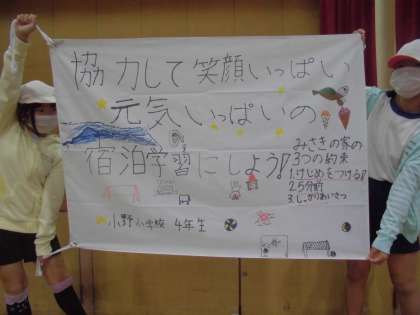 協力して笑顔いっぱい
元気いっぱいの
宿泊学習にしよう!
みさきの家の
3つの約束
1.けじめをつける
2.5分前
3.しっかりあいさつ
小野小学校 4年生